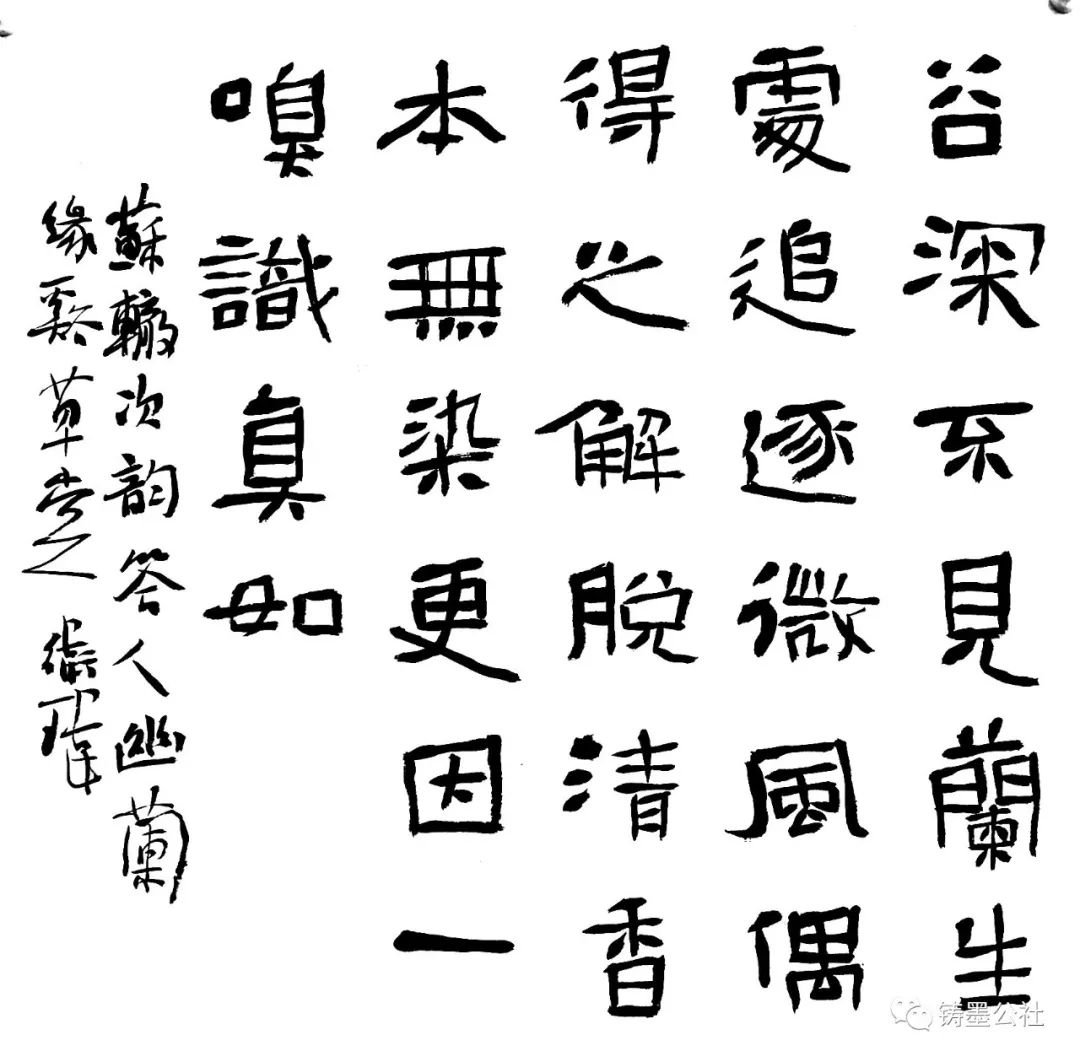 谷深不見蘭生
處追逐微風偶
得之解脫清香
本無染更因一
嗅識真如
蘇轍次韵答人幽蘭
緣谿草堂
铸墨公社